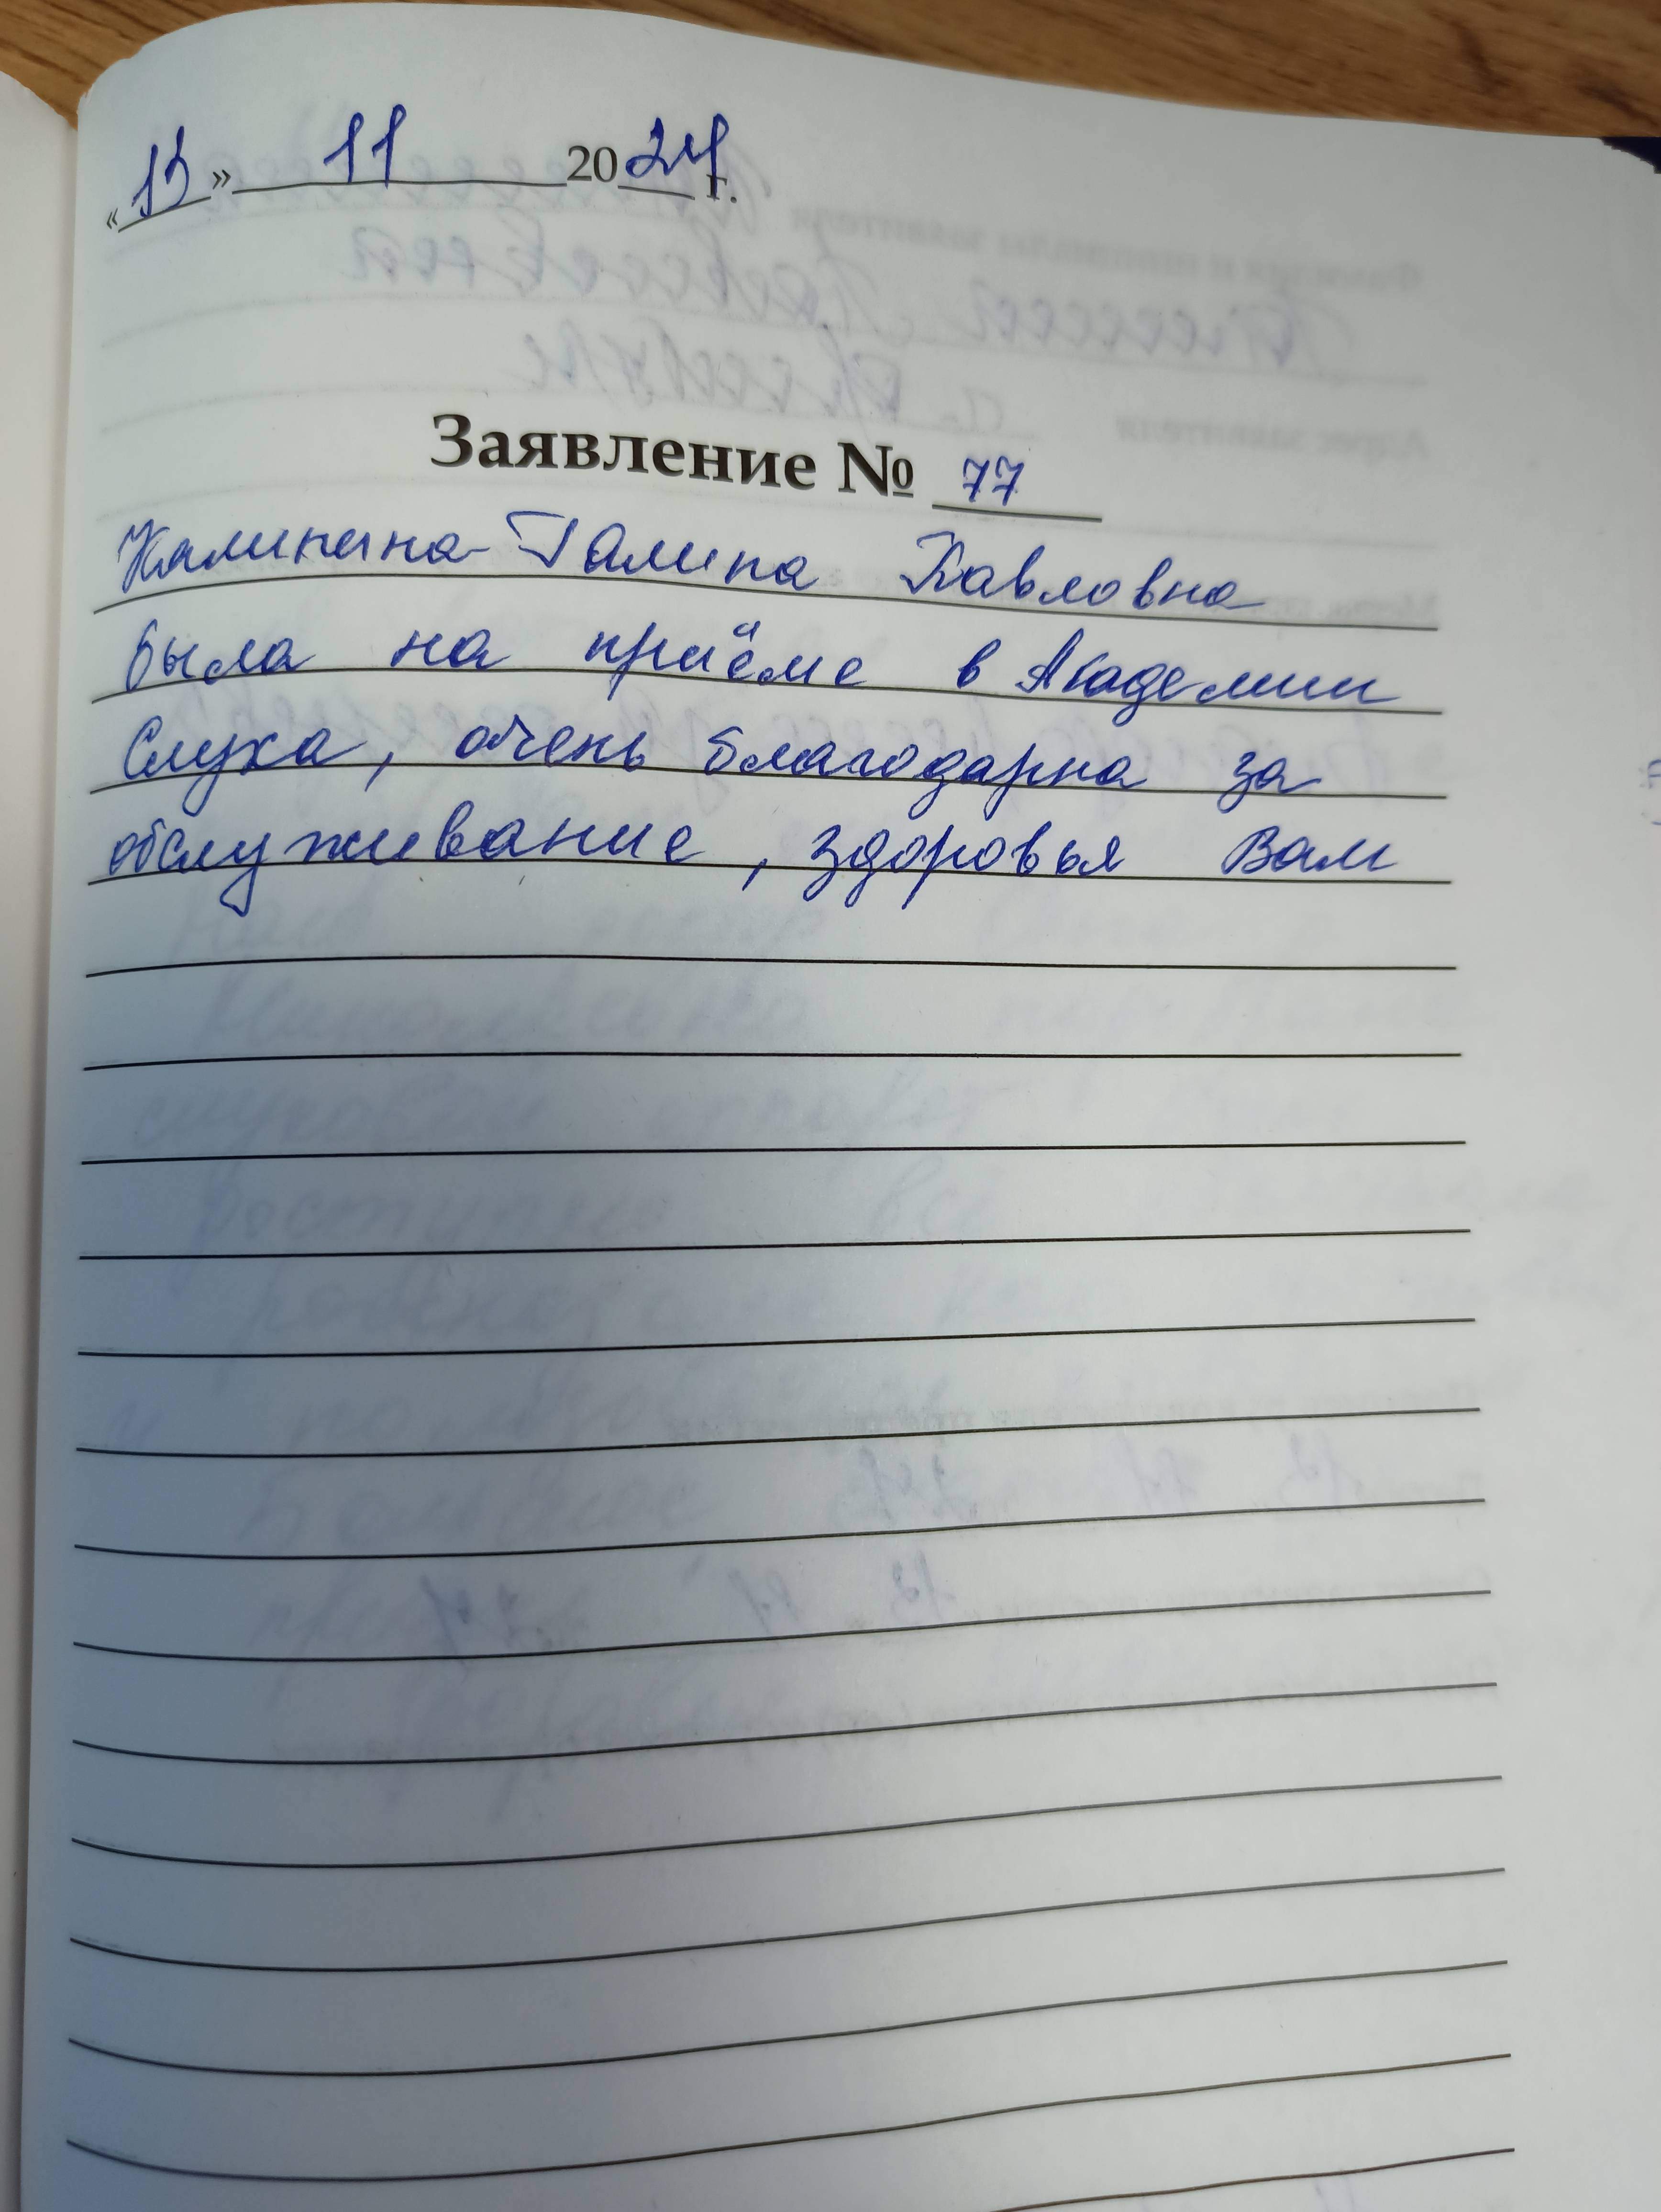 «13» 11 2024 г.
Заявление № 77
Калинина Галина Павловна
была на приёме в Академии
Слуха, очень благодарна за
обслуживание, здоровья Вам